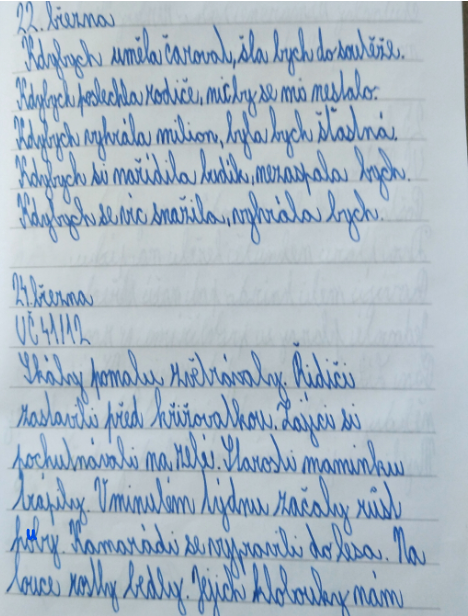 22. března
Kdybych uměla čarovat, šla bych do soutěže.
Kdybych poslechla rodiče, nic by se mi nestalo.
Kdybych vyhrála milion, byla bych šťastná.
Kdybych si nařídila budík, nezaspala bych.
Kdybych se víc snažila, vyhrála bych.
24. března
UČ 41/12
Skály pomalu zvětrávaly. Řidiči
zastavili před křižovatkou. Zajíci si
pochutnávali na zelí. Starosti maminku
trápily. V minulém týdnu začaly růst
huby. Kamarádi se vypravili do lesa. Na
louce rostly bedly. Jejich klobouky nám